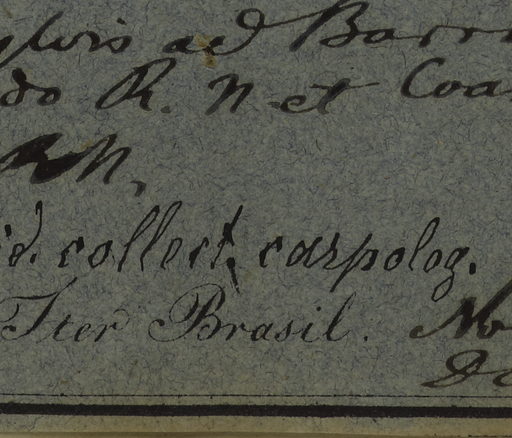 sylvis ad Barr
do R. N. et Coa
RN.
id. collect. carpolog.
Iter Brasil. No
De